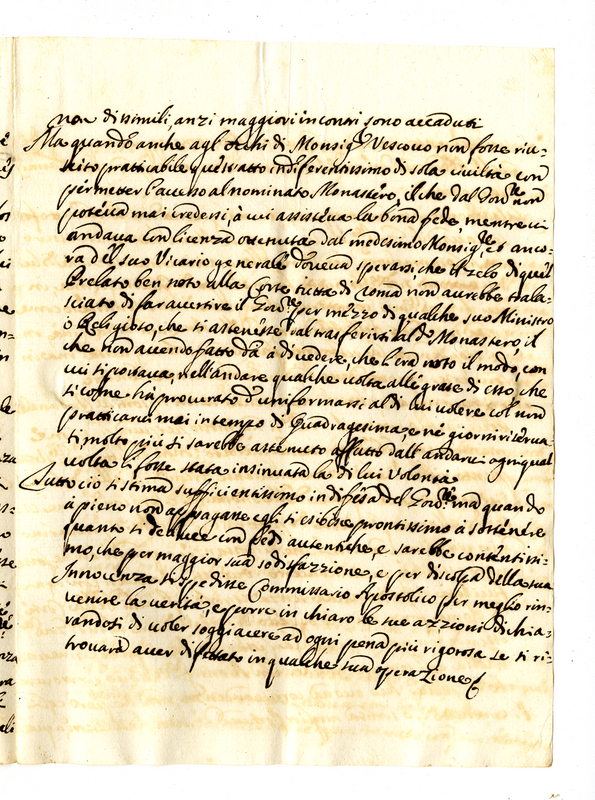 non dissimili, anzi maggiori incontri sono accaduti
Ma quando anche agl'occhi di Monsig.r Vescovo non fosse riu-
scito pratticabile questo atto indiferentissimo di sola civiltà con
permetter l'accesso al nominato Monastero, il che dal Gov.re non
poteva mai credersi, à cui assisteva la bona fede, mentre vi
andava con licenza ottenuta dal medesimo Monsig.re et anco-
ra del suo Vicario generale doveva sperarsi, che il zelo di quel
Prelato ben noto alla Corte tutta di Roma non avrebbe trala-
sciato di far avertire il Gov.re per mezzo di qualche suo Ministro
ò Religioso, che si astenesse dal trasferirsi al d.o Monastero, il
che non avendo fatto dà à divedere, che li era noto il modo, con
cui si portava, nell'andare qualche volta alle grate di esso, che
si come hà procurato d'uniformarsi al di lui volere col non
pratticarvi mai in tempo di Quadragesima, e né giorni riserva-
ti, molto più si sarebbe astenuto affatto dall'andarvi ogni qual
volta li fosse stata insinuata la di lui Volontà
Tutto ciò si stima sufficientissimo in difesa del Gov.re mà quando
à pieno non appagasse egli si esibisce prontissimo à sostenere
quanto si deduce con fedi autentiche, e sarebbe contentissi-
mo, che per maggior sua sodisfazzione, e per discolpa della sua
Innocenza si spedisse Commissario Apostolico per meglio rin-
venire la verità, e porre in chiaro le sue azzioni dichia-
randosi di voler soggiacere ad ogni pena più rigorosa se si ri-
trovarà aver in qualche sua operazione